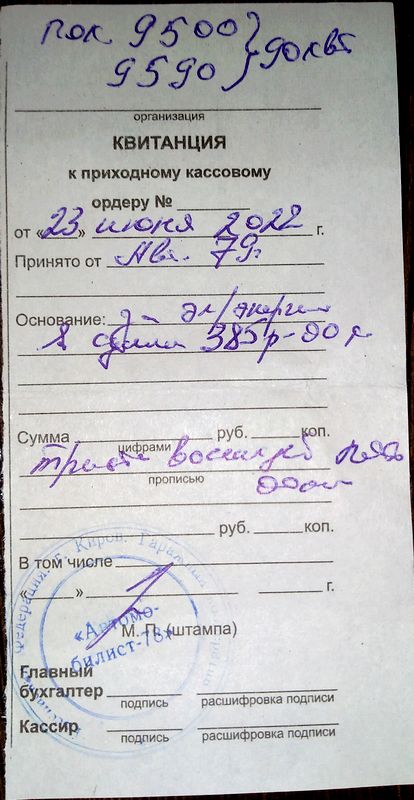 пок 9500 } 90 квт
9590
организация
КВИТАНЦИЯ
к приходному кассовому
ордеру №
от «23» июня 2022 г.
Принято от Ав. 79
Основание: за эл/энергию
В сумме 385р-00к
Сумма руб. коп.
цифрами
триста восемьдесят пять
прописью
00коп
руб. коп.
В том числе
« » г.
М. П. (штампа)
Федерация, г. Киров, Гаражный
«Автомо-
билист-78»
Главный
бухгалтер
подпись расшифровка подписи
Кассир
подпись расшифровка подписи